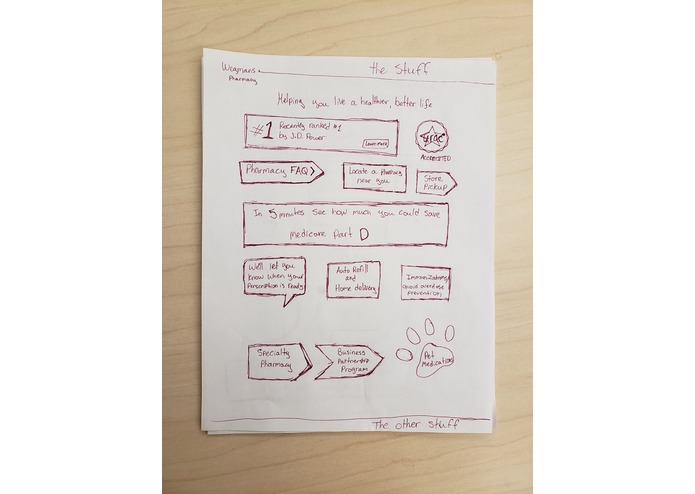 Wegmans
Pharmacy
the Stuff
Helping you live a healthier, better life
#1
Recently ranked #1
by J.D. Power
Learn more
ACCREDITED
Pharmacy FAQ >
Locate a Pharmacy
near you
Store
Pickup
In 5 minutes see how much you could save
medicare Part D
We'll let you
know when your
Prescription is ready
Auto Refill
and
Home delivery
Immunizations
opioid overdose
prevention
Specialty
Pharmacy
Business
Partnership
Program
Pet
Medications
The other stuff